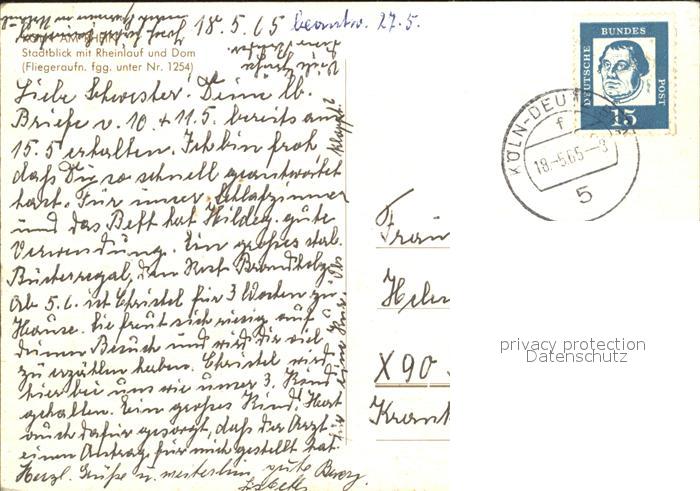 18.5.65 beantw. 27.5.
KÖLN AM RHEIN
Stadtblick mit Rheinlauf und Dom
(Fliegeraufn. fgg. unter Nr. 1254)
Liebe Schwester! Deine lb.
Briefe v. 10 + 11.5. bereits am
15.5 erhalten. Ich bin froh
daß Du so schnell geantwortet
hast. Für unser Schlafzimmer
und das Bett hat Hildeg. gute
Verwendung. Ein großes stab.
Bücherregal, den Rest Brandholz.
Ab 5.6. ist Christel für 3 Wochen zu
Hause. Sie freut sich riesig auf
deinen Besuch und wird Dir viel
zu erzählen haben. Christel wird
hier bei uns wie unser 3. Kind
gehalten. Ein großes Kind! Hast
auch dafür gesorgt, daß der Arzt
einen Antrag für mich gestellt hat.
Herzl. Grüße u. weiterhin gute Besserg.
DEUTSCHE BUNDESPOST
15
KÖLN-DEUTZ
f
18.-5.65-8
5
Fräu
Helen
X90
Krank
privacy protection
Datenschutz